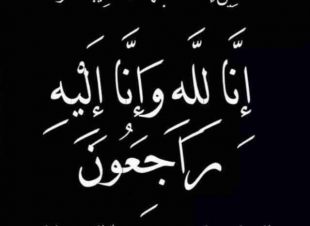 إِنَّا لِلَّه وَإِنَّا إِلَيْهِ
رَاجِعُونَ